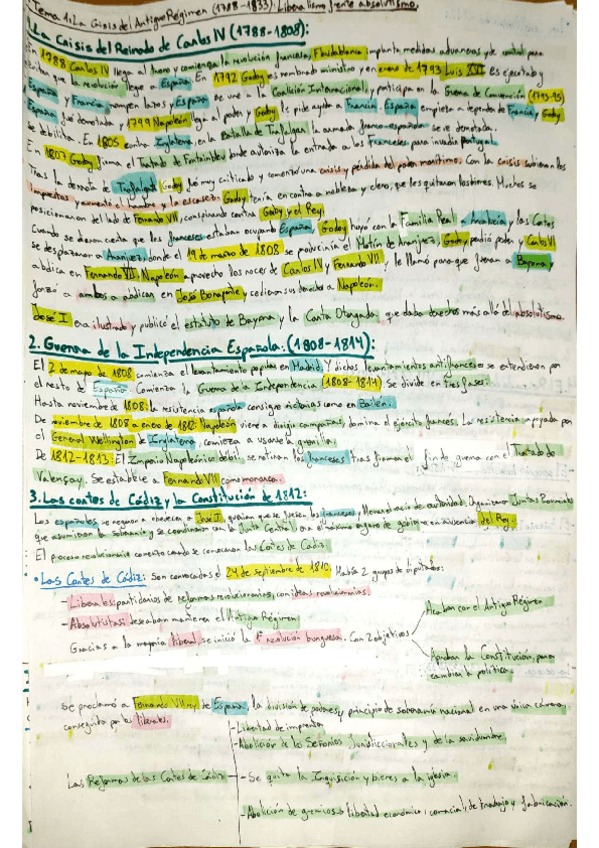 Tema 1: La Crisis del Antiguo Régimen (1788-1833): Liberalismo frente absolutismo.
1. La Crisis del Reinado de Carlos IV (1788-1808):
En 1788 Carlos IV llega al trono y comienza la revolución francesa, Floridablanca implanta medidas aduaneras y de control para
evitar que la revolución llege a España. En 1792 Godoy es nombrado ministro y en enero de 1793 Luis XVI es ejecutado y
España y Francia rompen lazos y España se une a la Coalición Internacional y participa en la Guerra de Convención (1793-95)
España fue derrotada. 1799 Napoleón llega al poder y Godoy le pide ayuda a Francia. España empieza a depender de Francia y Godoy
se debilita. En 1805 contra Inglaterra, en la Batalla de Trafalgar la armada franco-española se ve derrotada.
En 1807 Godoy firma el Tratado de Fontainebleau donde autoriza la entrada a los franceses para invadir Portugal.
Tras la derrota de Trafalgar Godoy fue muy criticado y comenzó una crisis y pérdida del poder marítimo. Con la crisis subieron los
impuestos y aumentó el hambre y la escasez. Godoy tenía en contra a nobleza y clero, que les quitaron los bienes. Muchos se
posicionaron del lado de Fernando VII, conspirando contra Godoy y el Rey.
Cuando se dieron cuenta que los franceses estaban ocupando España, Godoy huyó con la Familia Real a Andalucía y las Cortes
se desplazaron a Aranjuez, donde el 19 de marzo de 1808 se produciría el Motín de Aranjuez, Godoy perdió poder y Carlos VI
abdica en Fernando VII. Napoleón aprovecho los roces de Carlos IV y Fernando VII y le llamó para que fueran a Bayona y
forzó a ambos a abdicar en José Bonaparte y cedieron sus derechos a Napoleón.
José I era ilustrado y publicó el estatuto de Bayona y la Carta Otorgada que daba derechos más allá del absolutismo.
2. Guerra de la Independencia Española: (1808-1814):
El 2 de mayo de 1808 comienza el levantamiento popular en Madrid. Y dichos levantamientos antifranceses se extendieron por
el resto de España. Comienza la Guerra de la Independencia (1808-1814) Se divide en tres fases:
Hasta noviembre de 1808: la resistencia española consigue victorias como en Bailén.
De noviembre de 1808 a enero de 1812: Napoleón viene a dirigir campañas, domina el ejército francés. La resistencia apoyada por
el General Wellington de Inglaterra, comieza a usarse la guerrilla.
De 1812-1813: El Imperio Napoleónico débil, se retiran los franceses tras firmar el fin de guerra con el Tratado de
Valençay. Se establece a Fernando VII como monarca.
3. Las cortes de Cádiz y la Constitución de 1812:
Los españoles se negaron a obedecer a José I, querían que se fuesen los franceses y. Hacía de autoridad. Organizaron Juntas Provinciales
que asumirían la soberanía y se coordinaron con la Junta Central. Era el máximo órgano de gobierno en ausencia del Rey.
El proceso revolucionario comenzó cuando se convocaron las Cortes de Cádiz
• Las Cortes de Cádiz: Son convocadas el 24 de septiembre de 1810. Había 2 grupos de diputados:
- Liberales: partidarios de reformas revolucionarias, con ideas revolucionarias
- Absolutistas: deseaban mantener el Antiguo Régimen
Gracias a la mayoría liberal se inició la 1ª revolución burguesa. Con 2 objetivos
Acabar con el Antiguo Régimen
Aprobar la Constitución, para cambiar la política.
Se proclamó a Fernando VII rey de España, la división de poderes y principio de soberanía nacional en una única cámara,
conseguido por los liberales.
Las Reformas de las Cortes de Cádiz
- Libertad de imprenta
- Abolición de los Señoríos Jurisdiccionales y de la servidumbre
- Se quita la Inquisición y bienes a la iglesia.
- Abolición de gremios → libertad económica, comercial, de trabajo y fabricación.